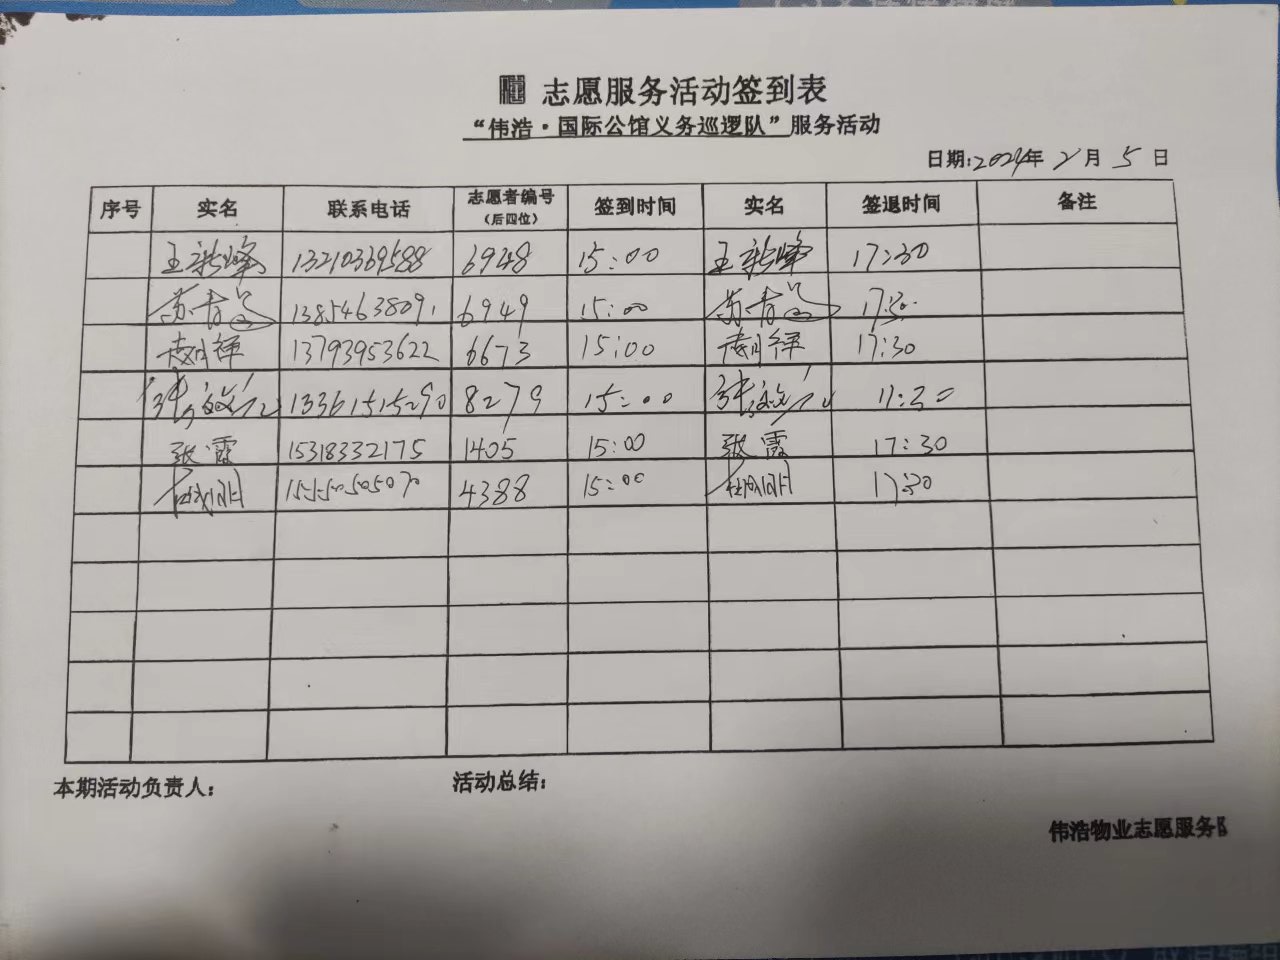 志愿服务活动签到表
“伟浩·国际公馆义务巡逻队”服务活动
日期:2024年2月5日
序号 实名 联系电话 志愿者编号(后四位) 签到时间 实名 签退时间 备注
王新峰 13210369588 6948 15:00 王新峰 17:30
苏青 1385463809 6949 15:00 苏青 17:30
祥 13793953622 6673 15:00 祥 17:30
张 13361515290 8279 15:00 张 17:30
张霞 15318332175 1405 15:00 张霞 17:30
杜 15550505070 4388 15:00 杜 17:30
本期活动负责人: 活动总结:
伟浩物业志愿服务队